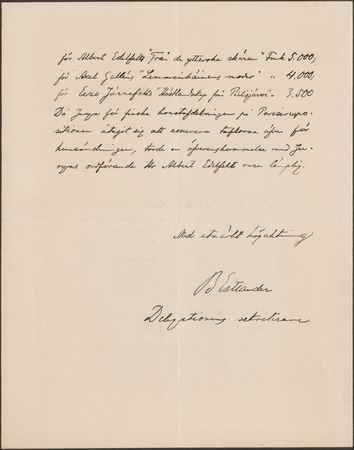 för Albert Edelfelts "Från de yttersta skären" Fmk 5.000,
för Axel Galléns "Lemminkäinens moder" " 4.000,
för Eero Järnefelts "Höstlandskap från Pielisjärvi" 3.500
Då Juryn för finska konstafdelningen på Parisexpo-
sitionen åtagit sig att assurera taflorna äfven för
hemsändningen, torde en öfverenskommelse med Ju-
ryns ordförande Hr Albert Edelfelt vara lämplig.
Med utmärkt högaktning
B Estlander
Delegationens sekreterare